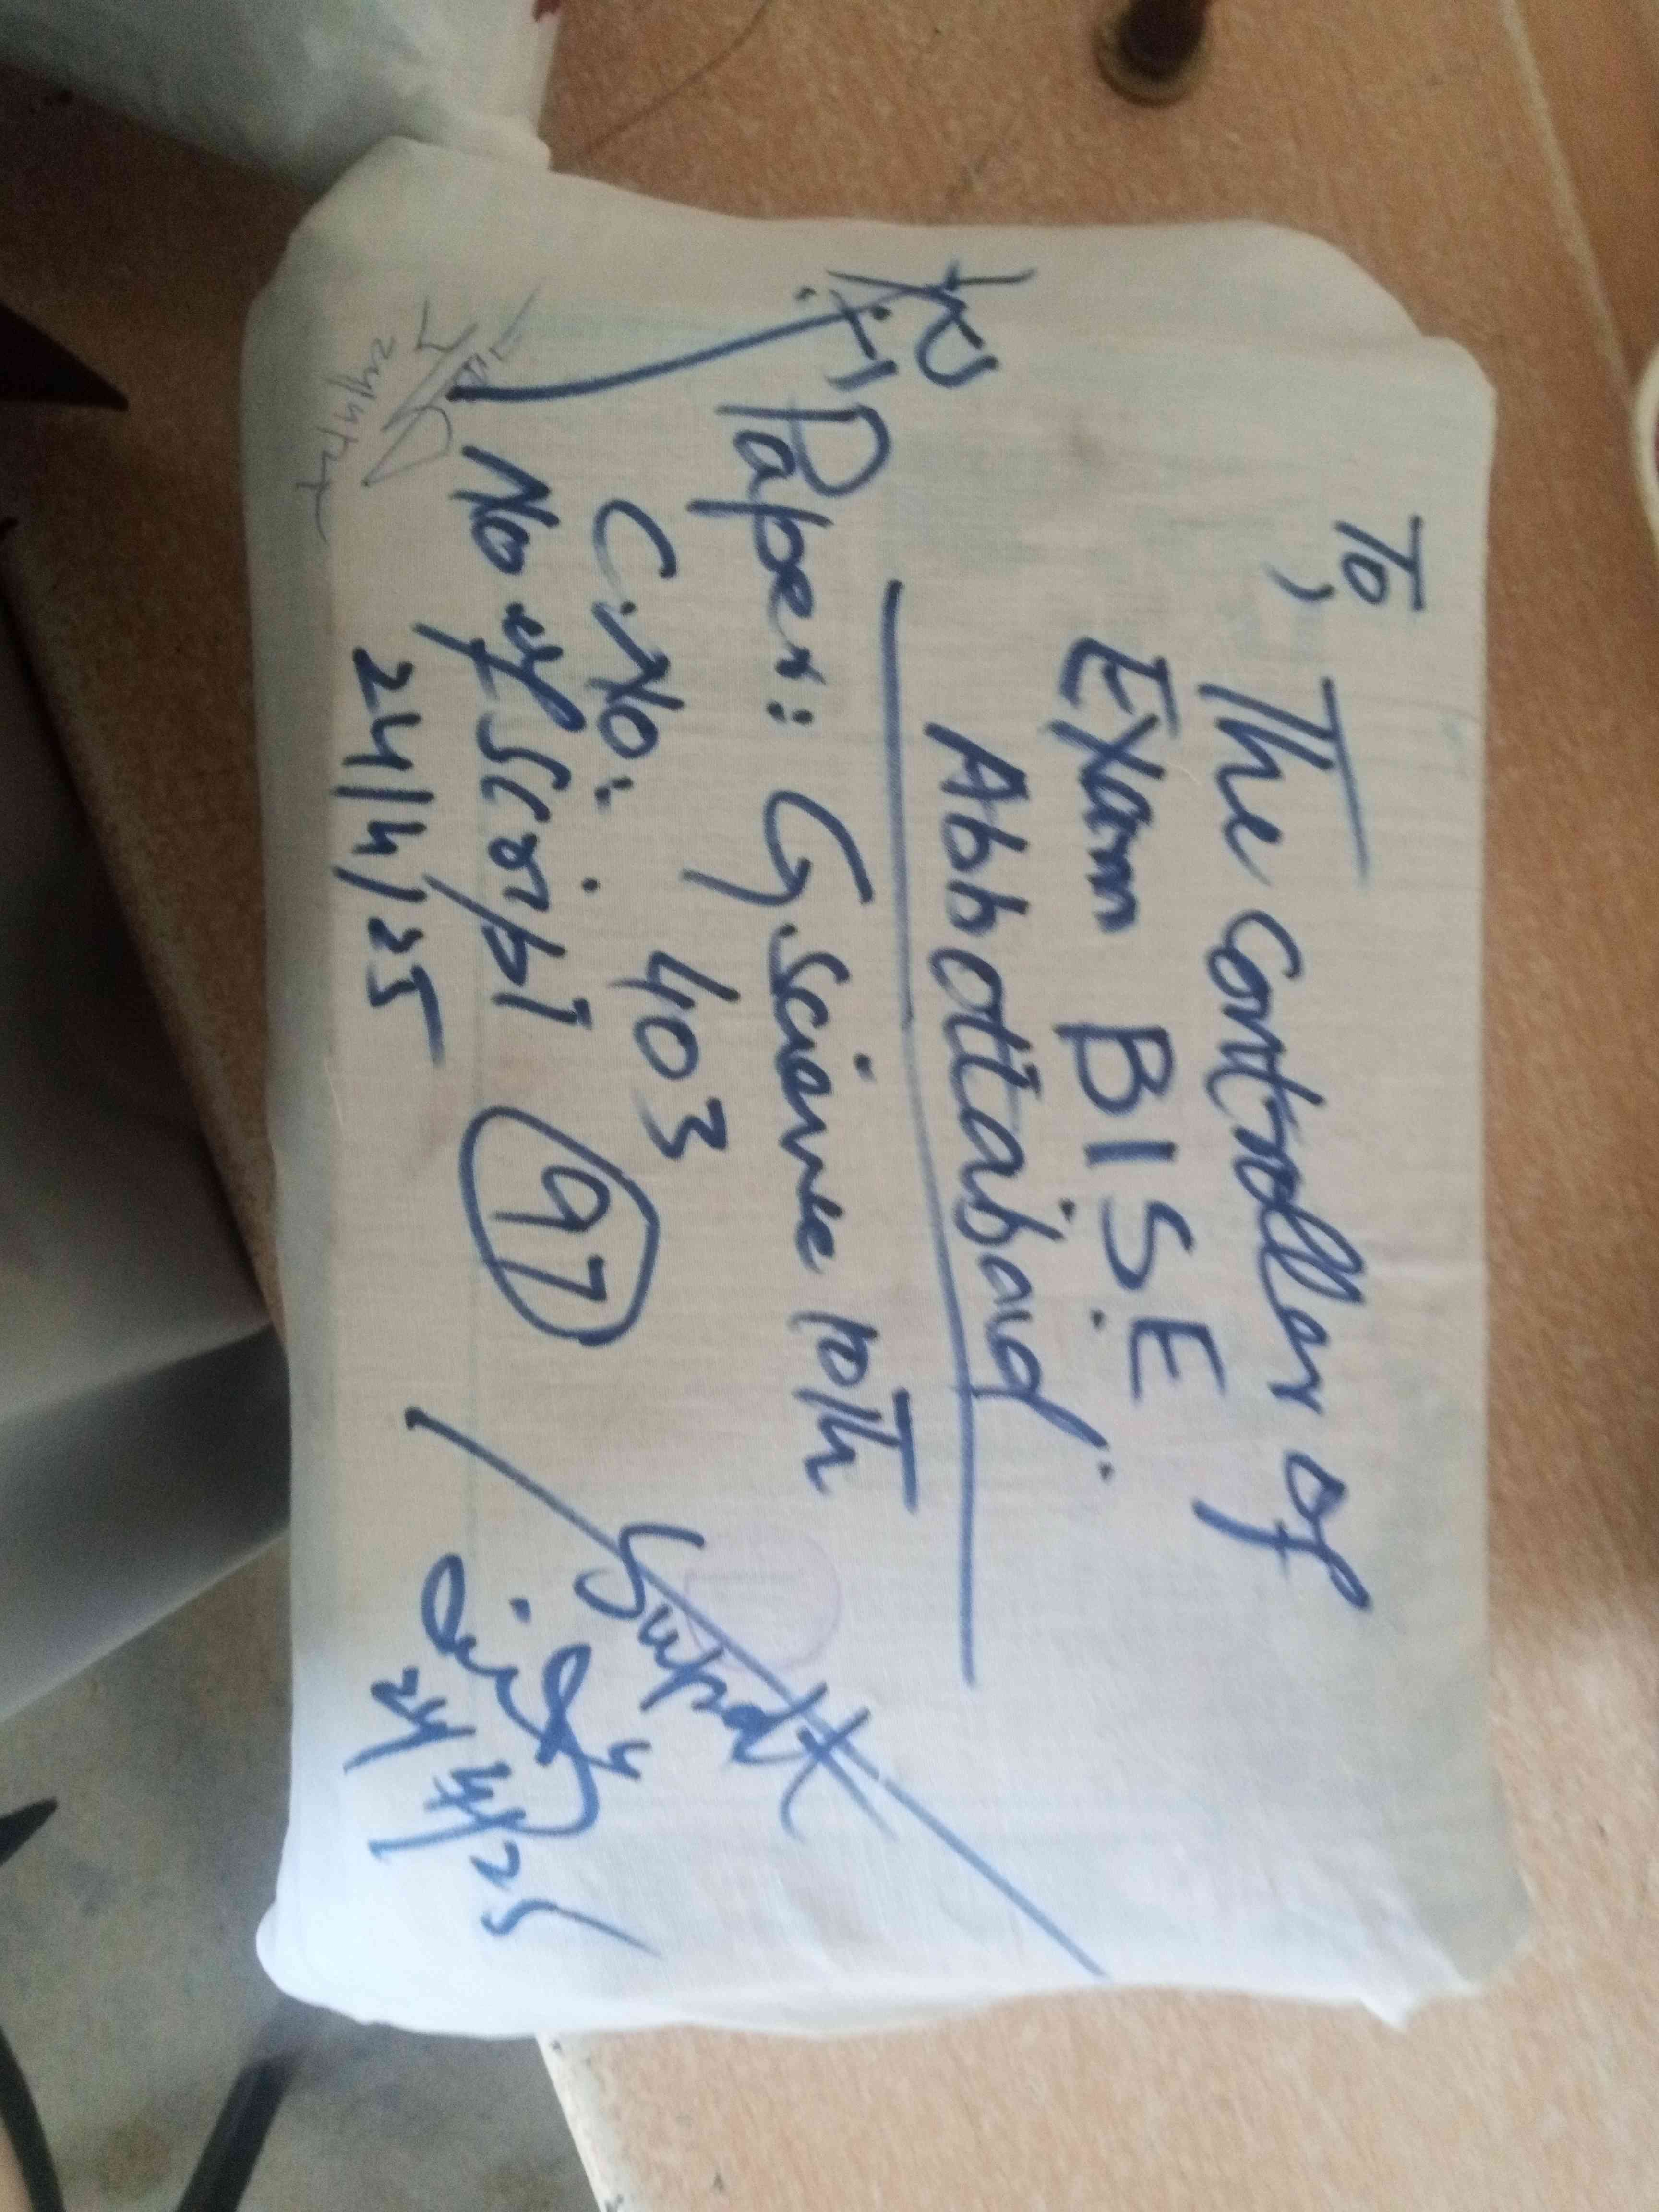 To,
The controller of
Exam BISE
Abbottabad.
Paper:: G.science 10th
C.No: 403
No of Script 97
24/4/25
Supdt
24/4/25